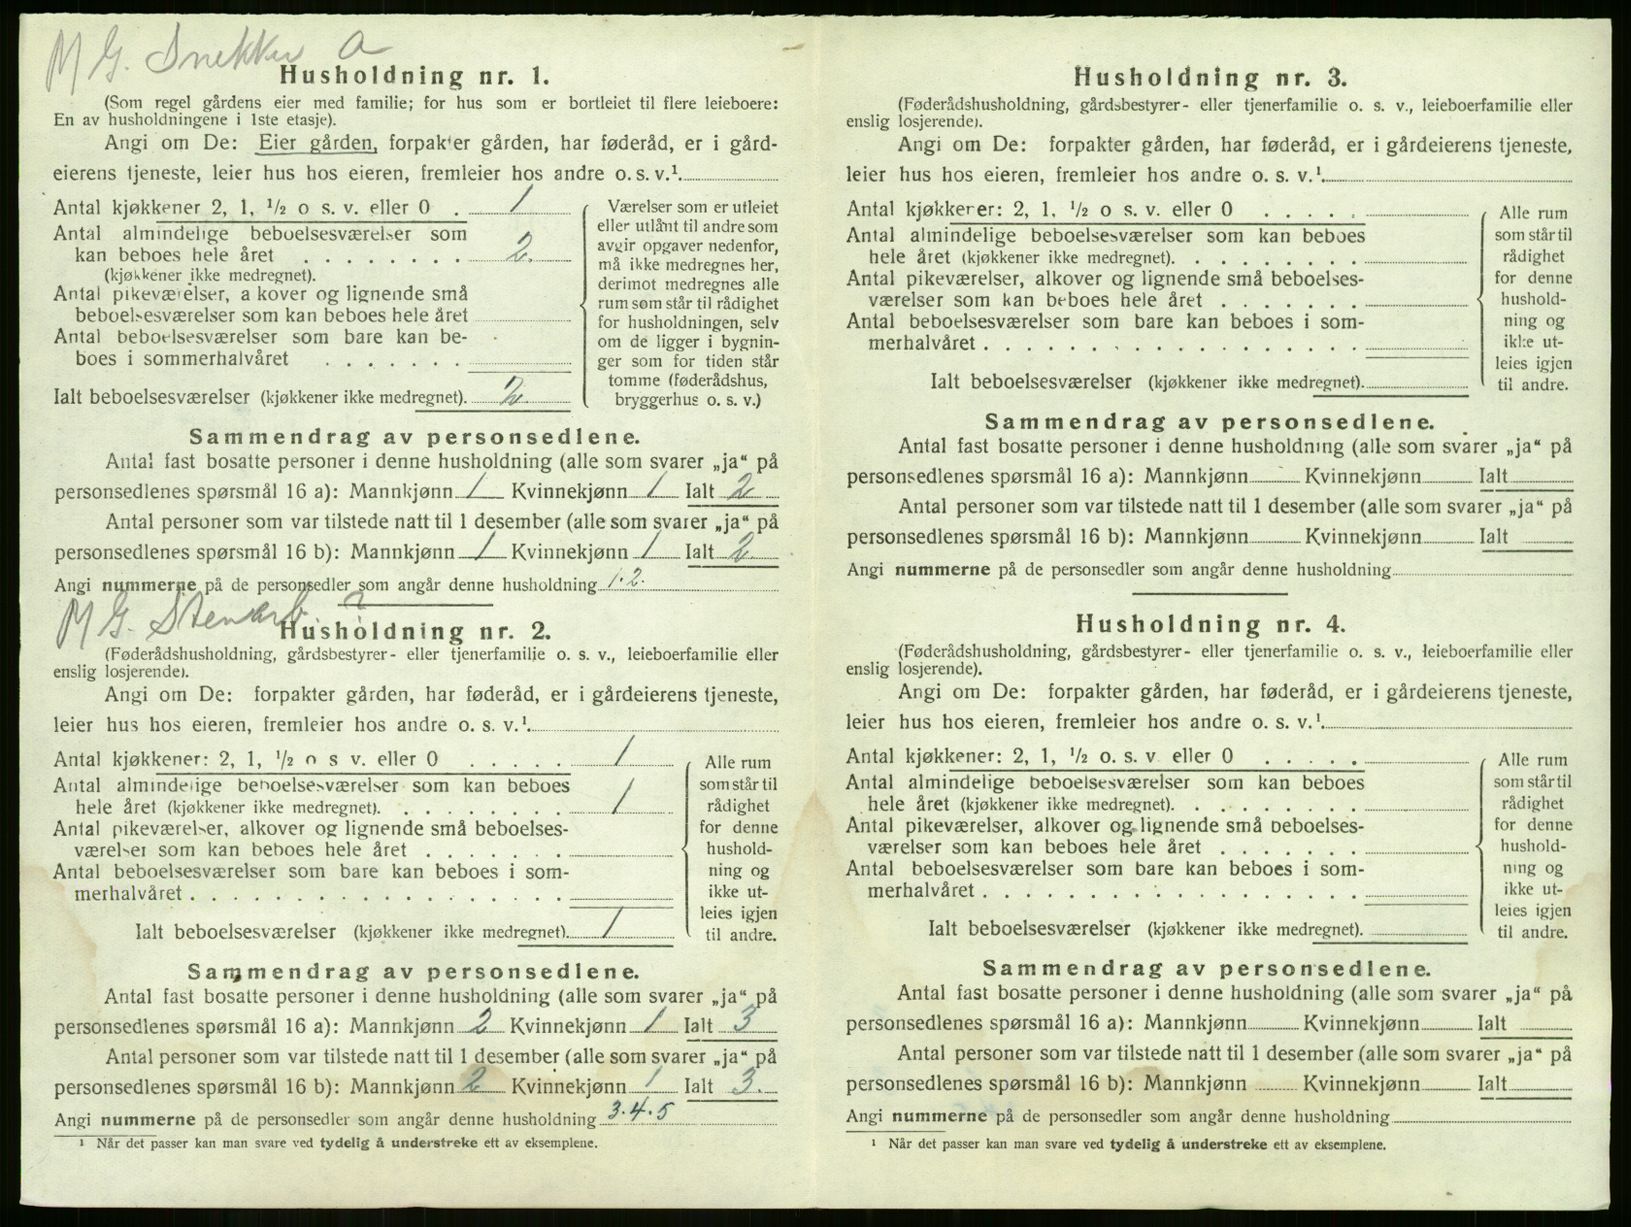 M G. Snekker a
Husholdning nr. 1.
(Som regel gårdens eier med familie; for hus som er bortleiet til flere leieboere:
En av husholdningene i 1ste etasje).
Angi om De: Eier gården, forpakter gården, har føderåd, er i gård-
eierens tjeneste, leier hus hos eieren, fremleier hos andre o. s. v.¹
Antal kjøkkener 2, 1, ½ o s. v. eller 0 . 1
Antal almindelige beboelsesværelser som
kan beboes hele året . . . . . . . . 2.
(kjøkkener ikke medregnet).
Antal pikeværelser, a kover og lignende små
beboelsesværelser som kan beboes hele året
Antal beboelsesværelser som bare kan be-
boes i sommerhalvåret . . . . . .
Ialt beboelsesværelser (kjøkkener ikke medregnet). 2.
Værelser som er utleiet
eller utlånt til andre som
avgir opgaver nedenfor,
må ikke medregnes her,
derimot medregnes alle
rum som står til rådighet
for husholdningen, selv
om de ligger i bygnin-
ger som for tiden står
tomme (føderådshus,
bryggerhus o. s. v.)
Sammendrag av personsedlene.
Antal fast bosatte personer i denne husholdning (alle som svarer „ja“ på
personsedlenes spørsmål 16 a): Mannkjønn 1 Kvinnekjønn 1 Ialt 2
Antal personer som var tilstede natt til 1 desember (alle som svarer „ja“ på
personsedlenes spørsmål 16 b): Mannkjønn 1 Kvinnekjønn 1 Ialt 2.
Angi nummerne på de personsedler som angår denne husholdning 1.2.
M G. Stenarb. ?
Husholdning nr. 2.
(Føderådshusholdning, gårdsbestyrer- eller tjenerfamilie o. s. v., leieboerfamilie eller
enslig losjerende).
Angi om De: forpakter gården, har føderåd, er i gårdeierens tjeneste,
leier hus hos eieren, fremleier hos andre o. s. v.¹
Antal kjøkkener: 2, 1, ½ o s v. eller 0 . . . . . 1
Antal almindelige beboelsesværelser som kan beboes
hele året (kjøkkener ikke medregnet). . . . . . . . 1
Antal pikeværelser, alkover og lignende små beboelses-
værelser som kan beboes hele året . . . . . . .
Antal beboelsesværelser som bare kan beboes i som-
merhalvåret . . . . . . . . . . . . . . . . . .
Ialt beboelsesværelser (kjøkkener ikke medregnet). 1
Alle rum
som står til
rådighet
for denne
hushold-
ning og
ikke ut-
leies igjen
til andre.
Sammendrag av personsedlene.
Antal fast bosatte personer i denne husholdning (alle som svarer „ja“ på
personsedlenes spørsmål 16 a): Mannkjønn 2 Kvinnekjønn 1 Ialt 3
Antal personer som var tilstede natt til 1 desember (alle som svarer „ja“ på
personsedlenes spørsmål 16 b): Mannkjønn 2 Kvinnekjønn 1 Ialt 3.
Angi nummerne på de personsedler som angår denne husholdning 3.4.5
¹ Når det passer kan man svare ved tydelig å understreke ett av eksemplene.
Husholdning nr. 3.
(Føderådshusholdning, gårdsbestyrer- eller tjenerfamilie o. s. v., leieboerfamilie eller
enslig losjerende).
Angi om De: forpakter gården, har føderåd, er i gårdeierens tjeneste,
leier hus hos eieren, fremleier hos andre o. s. v.¹
Antal kjøkkener: 2, 1, ½ o s. v. eller 0 . . . . .
Antal almindelige beboelsesværelser som kan beboes
hele året (kjøkkener ikke medregnet). . . . . . . .
Antal pikeværelser, alkover og lignende små beboelses-
værelser som kan beboes hele året . . . . . . .
Antal beboelsesværelser som bare kan beboes i som-
merhalvåret . . . . . . . . . . . . . . . . . .
Ialt beboelsesværelser (kjøkkener ikke medregnet).
Alle rum
som står til
rådighet
for denne
hushold-
ning og
ikke ut-
leies igjen
til andre.
Sammendrag av personsedlene.
Antal fast bosatte personer i denne husholdning (alle som svarer „ja“ på
personsedlenes spørsmål 16 a): Mannkjønn Kvinnekjønn Ialt
Antal personer som var tilstede natt til 1 desember (alle som svarer „ja“ på
personsedlenes spørsmål 16 b): Mannkjønn Kvinnekjønn Ialt
Angi nummerne på de personsedler som angår denne husholdning
Husholdning nr. 4.
(Føderådshusholdning, gårdsbestyrer- eller tjenerfamilie o. s. v., leieboerfamilie eller
enslig losjerende).
Angi om De: forpakter gården, har føderåd, er i gårdeierens tjeneste,
leier hus hos eieren, fremleier hos andre o. s. v.¹
Antal kjøkkener: 2, 1, ½ o. s. v eller 0 . . . . .
Antal almindelige beboelsesværelser som kan beboes
hele året (kjøkkener ikke medregnet). . . . . . . .
Antal pikeværelser, alkover og lignende små beboelses-
værelser som kan beboes hele året . . . . . . .
Antal beboelsesværelser som bare kan beboes i som-
merhalvåret . . . . . . . . . . . . . . . . . .
Ialt beboelsesværelser (kjøkkener ikke medregnet).
Alle rum
som står til
rådighet
for denne
hushold-
ning og
ikke ut-
leies igjen
til andre.
Sammendrag av personsedlene.
Antal fast bosatte personer i denne husholdning (alle som svarer „ja“ på
personsedlenes spørsmål 16 a): Mannkjønn Kvinnekjønn Ialt
Antal personer som var tilstede natt til 1 desember (alle som svarer „ja“ på
personsedlenes spørsmål 16 b): Mannkjønn Kvinnekjønn Ialt
Angi nummerne på de personsedler som angår denne husholdning
¹ Når det passer kan man svare ved tydelig å understreke ett av eksemplene.